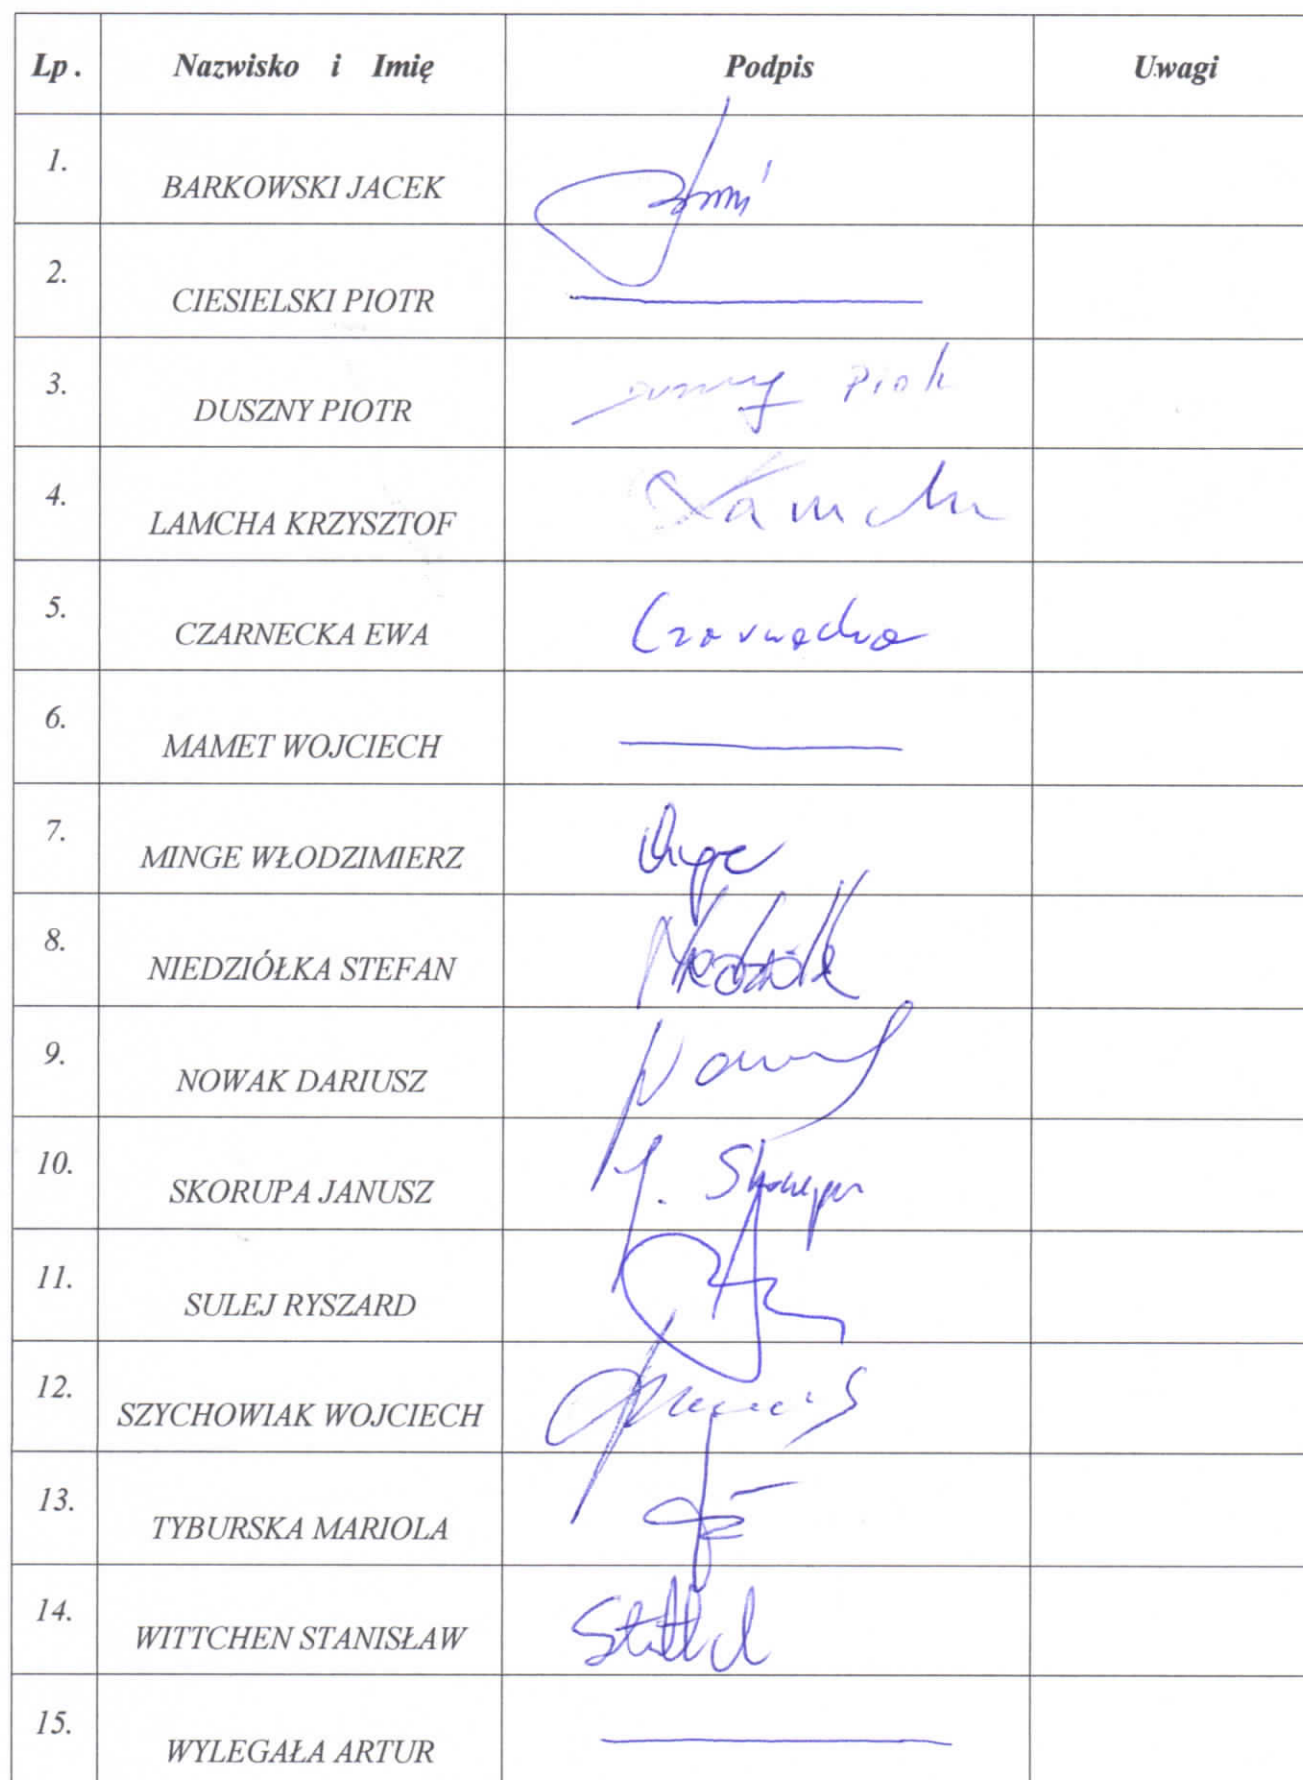 Lp. Nazwisko i Imię Podpis Uwagi
1. BARKOWSKI JACEK
2. CIESIELSKI PIOTR
3. DUSZNY PIOTR
4. LAMCHA KRZYSZTOF Lamcha
5. CZARNECKA EWA Czarnecka
6. MAMET WOJCIECH
7. MINGE WŁODZIMIERZ
8. NIEDZIÓŁKA STEFAN
9. NOWAK DARIUSZ Nowak
10. SKORUPA JANUSZ J. Skorupa
11. SULEJ RYSZARD
12. SZYCHOWIAK WOJCIECH
13. TYBURSKA MARIOLA
14. WITTCHEN STANISŁAW
15. WYLEGAŁA ARTUR